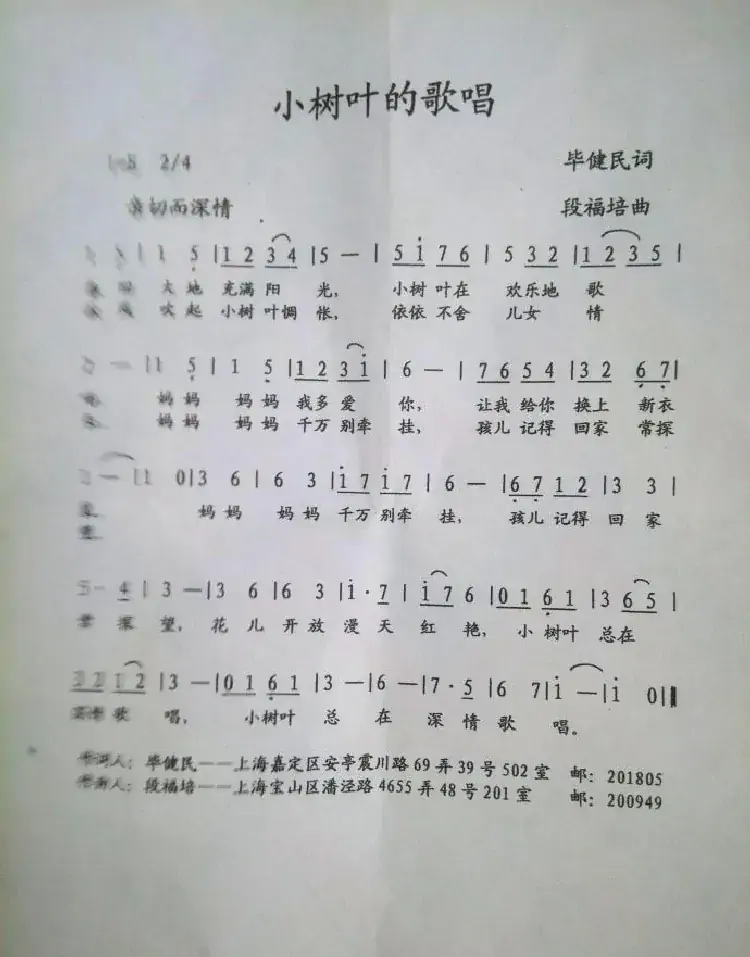 小树叶的歌唱
2/4 毕健民词
切而深情 段福培曲
1 5 | 1 2 3 4 | 5 — | 5 i 7 6 | 5 3 2 | 1 2 3 5 |
大地 充满 阳 光, 小树 叶在 欢乐地 歌
吹起 小树 叶惆 怅, 依依 不舍 儿女 情
— | 1 5 | 1 5 | 1 2 3 i | 6 — | 7 6 5 4 | 3 2 6 7 |
妈妈 妈妈 我多 爱 你, 让我 给你 换上 新衣
妈妈 妈妈 千万 别牵 挂, 孩儿 记得 回家 常探
— | 1 0 | 3 6 | 6 3 | i 7 i 7 | 6 — | 6 7 1 2 | 3 3 |
妈妈 妈妈 千万 别牵 挂, 孩儿 记得 回 家
5 — 4 | 3 — | 3 6 | 6 3 | i · 7 | i 7 6 | 0 1 6 1 | 3 6 5 |
常 探 望, 花 儿 开 放 漫 天 红 艳, 小 树叶 总在
1 2 | 3 — | 0 1 6 1 | 3 — | 6 — | 7 · 5 | 6 7 | i — | i 0 ‖
歌 唱, 小树叶 总 在 深 情 歌 唱。
作词人: 毕健民——上海嘉定区安亭震川路 69 弄 39 号 502 室 邮: 201805
作曲人: 段福培——上海宝山区潘泾路 4655 弄 48 号 201 室 邮: 200949